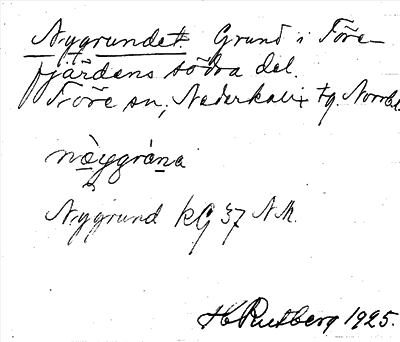 Nygrundet. Grund i Töre-
fjärdens södra del.
Töre sn, Nederkalix tg. Norrb.
Nygrund kG 37 N.M.
H Rutberg 1925.